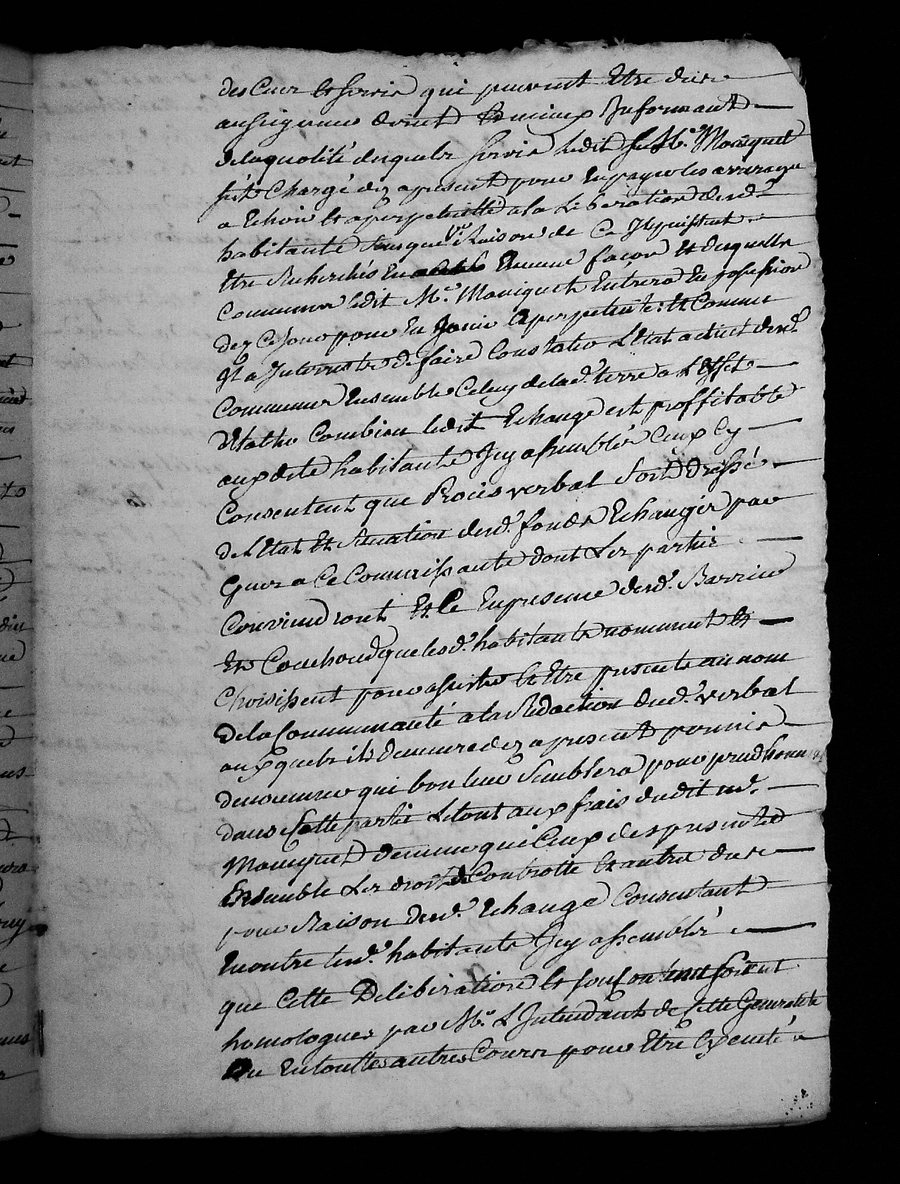 des Cens et servis qui peuvent Etre dus
au seigneur dont Le mieux Informant
de la qualité desquels servis ledit Sr Me Moniquet
sera Chargé dez apresent pour En payer les arrerages
a Echoir et aperpetuitté a la Liberation desd.
habitants sans que Raison de Ce Ils puissent
Etre Recherchés En Aucune façon Et desquelles
Communes ledit Me Moniquet Entrera En possession
dez Ce Jour pour En Jouir aperpetuité Et Comme
Il a Interest de faire Constater L'Etat actuel desd.
Communes Ensemble Celuy de lad. terre a L'effet
Combien ledit Echange est proffitable
auxdits habitants Icy assemblés Ceux Cy
Consentent que Procès verbal soit dressé
de L'Etat Et Situation desd. fonds Echangés par
gens a Ce Connoissants dont Les parties
Conviendront Et Ce En presence desd. Barrin
Et Couchoud que lesd. habitants nomment Et
Choisissent pour assister Et Etre presents au nom
de la Communauté a la Redaction dud. verbal
auxquels Il Demeure dez apresent permis
de nommer qui bon leur Semblera pour prudhomme
dans Cette partie Le tout aux frais dudit Me
Moniquet de meme que Ceux des presentes
Ensemble Les droits de Controlle Et autres dus
pour Raison dud. Echange Consentant
En outre lesd. habitants Icy assemblés
que Cette Deliberation Et soient
homologués par Mr L'Intendant de Cette Generalité
Ou En touttes autres Cours pour Etre Executé